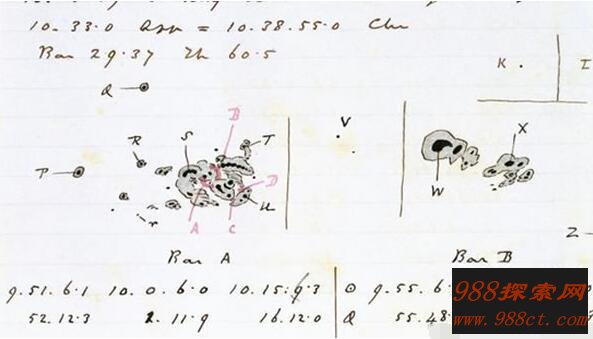 10. 33.0 App = 10.38.55.0 Chr
Bar 29.37 Th 60.5
K I
Q
B V X
R S T
P D
W
A C U
Z
Bar A Bar B
9.51.6.1 10.0.6.0 10.15.9.3 ⊙ 9.55.6
52.12.3 2.11.9 16.12.0 Q 55.48
988探索网
www.988ct.com